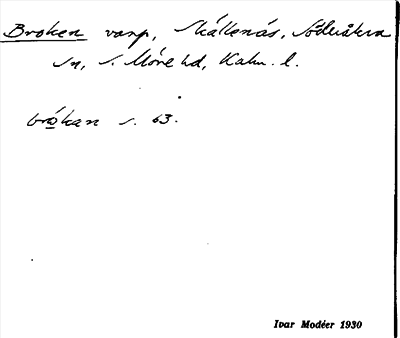 Broken varp, Skällenäs, Söderåkra
sn, S. Möre hd, Kalm. l.
brókan s. 63.
Ivar Modéer 1930